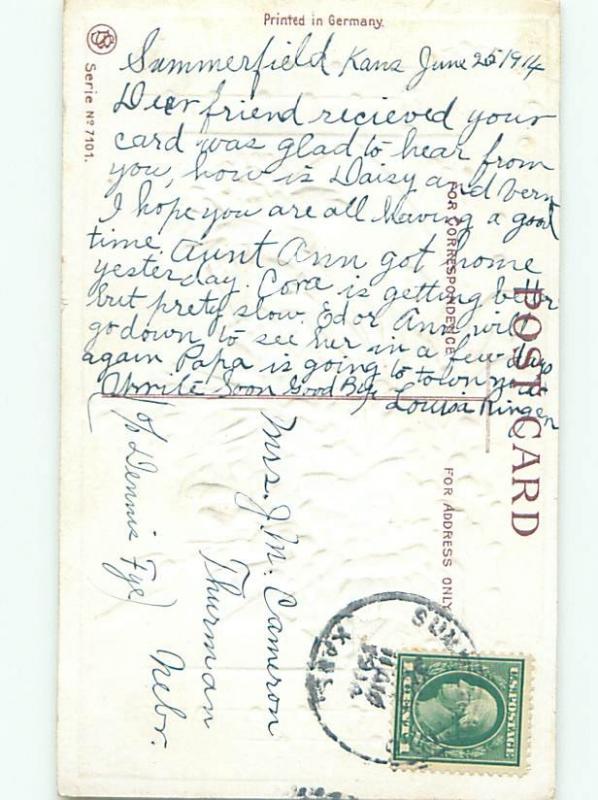 Printed in Germany.
Serie No 7101.
Summerfield Kans June 25 1914
Dear friend recieved your
card was glad to hear from
you, how is Daisy and Vern
I hope you are all having a good
time. Aunt Ann got home
yesterday. Cora is getting better
but prety slow. Ed or Ann will
go down to see her in a few days
again Papa is going to town
write Soon Good By Louisa Ringen
POST CARD
FOR CORRESPONDENCE
FOR ADDRESS ONLY
Mrs. J. M. Cameron
Thurman
Nebr.
c/o Dennis Fye
U.S. POSTAGE
1 CENT 1